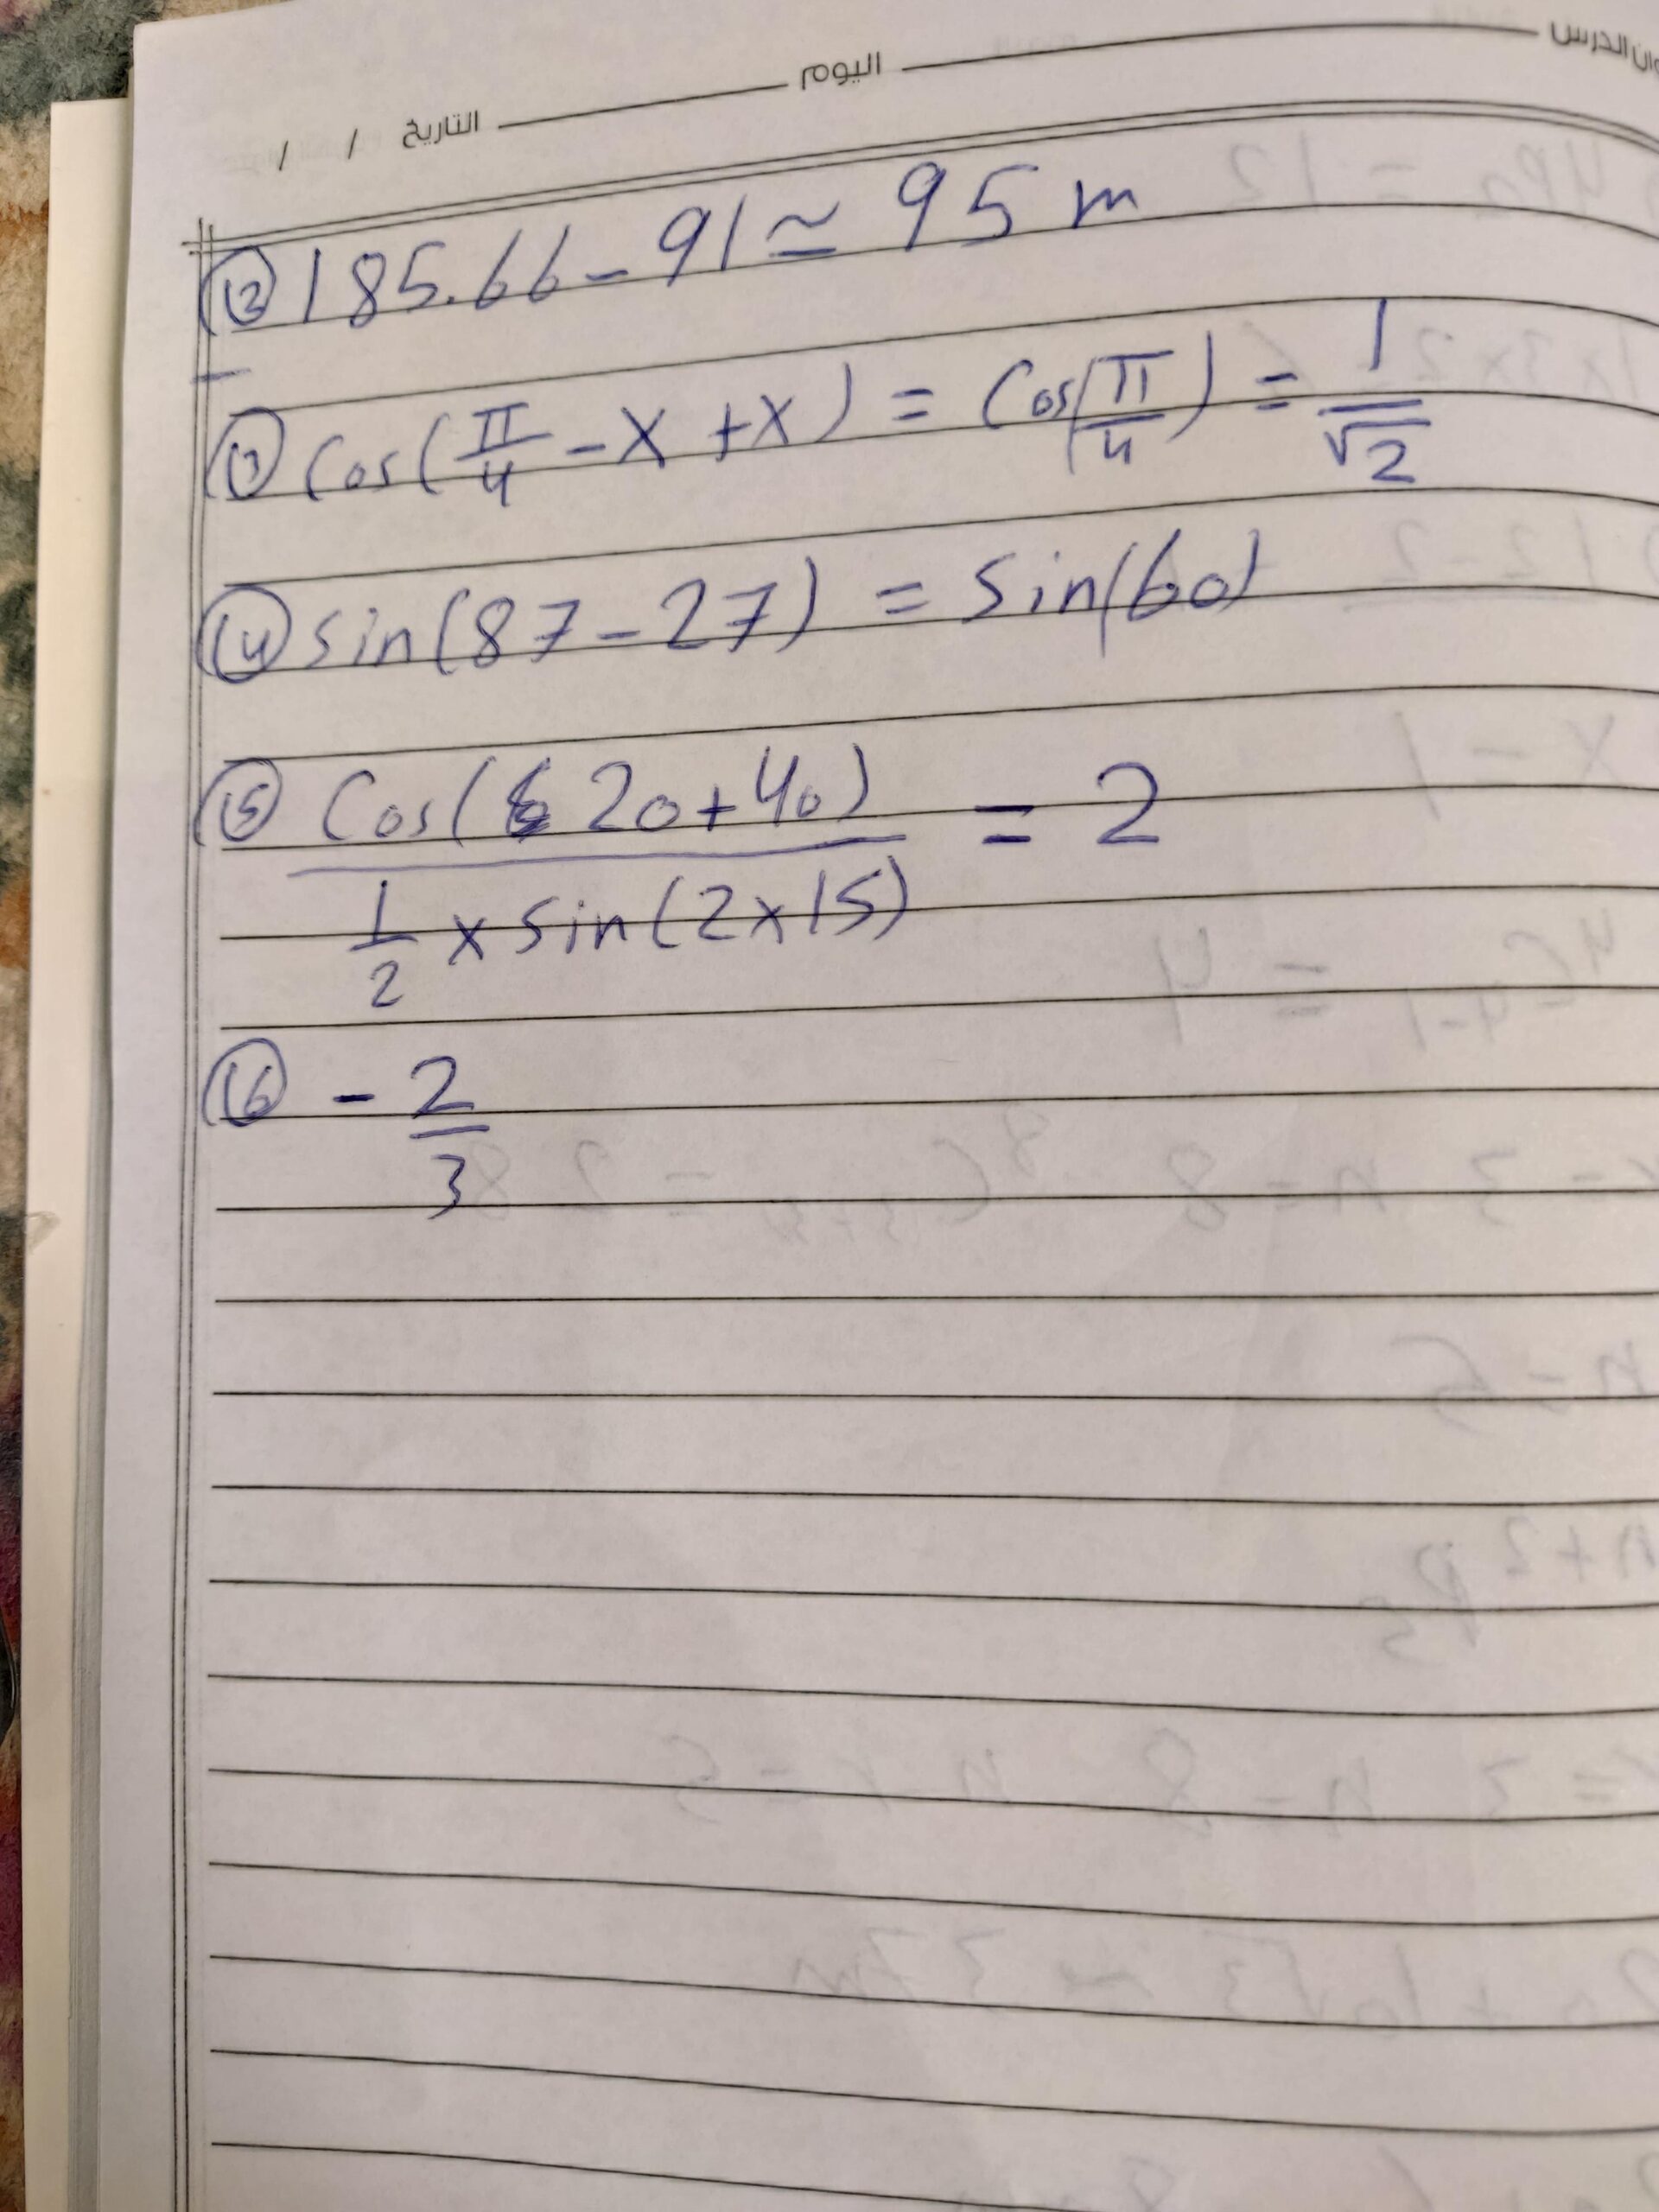 عنوان الدرس اليوم التاريخ / /
(12) 185.66 - 91 ≃ 95 m
(13) Cos(π/4 - x + x) = Cos(π/4) = 1/√2
(14) sin(87 - 27) = sin(60)
(15) Cos(20 + 40) / (1/2 × sin(2×15)) = 2
(16) - 2/3